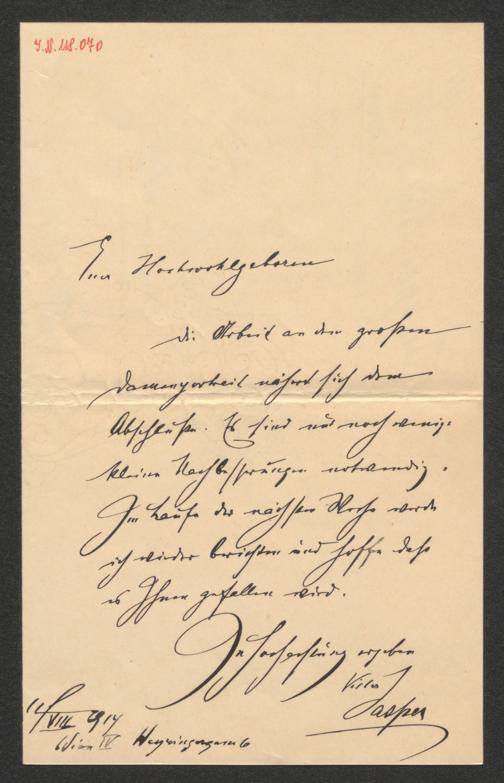 I.N. 118.070
Euer Hochwohlgeboren
die Arbeit an dem großen
Damenportrait nähert sich dem
Abschluße. Es sind nur noch wenige
kleine Nachbesserungen notwendig.
Im Laufe der nächsten Woche werde
ich wieder berichten und hoffe daß
es Ihnen gefallen wird.
In Hochachtung ergeben
Victor
Jasper
VIII 1914
Wien IV